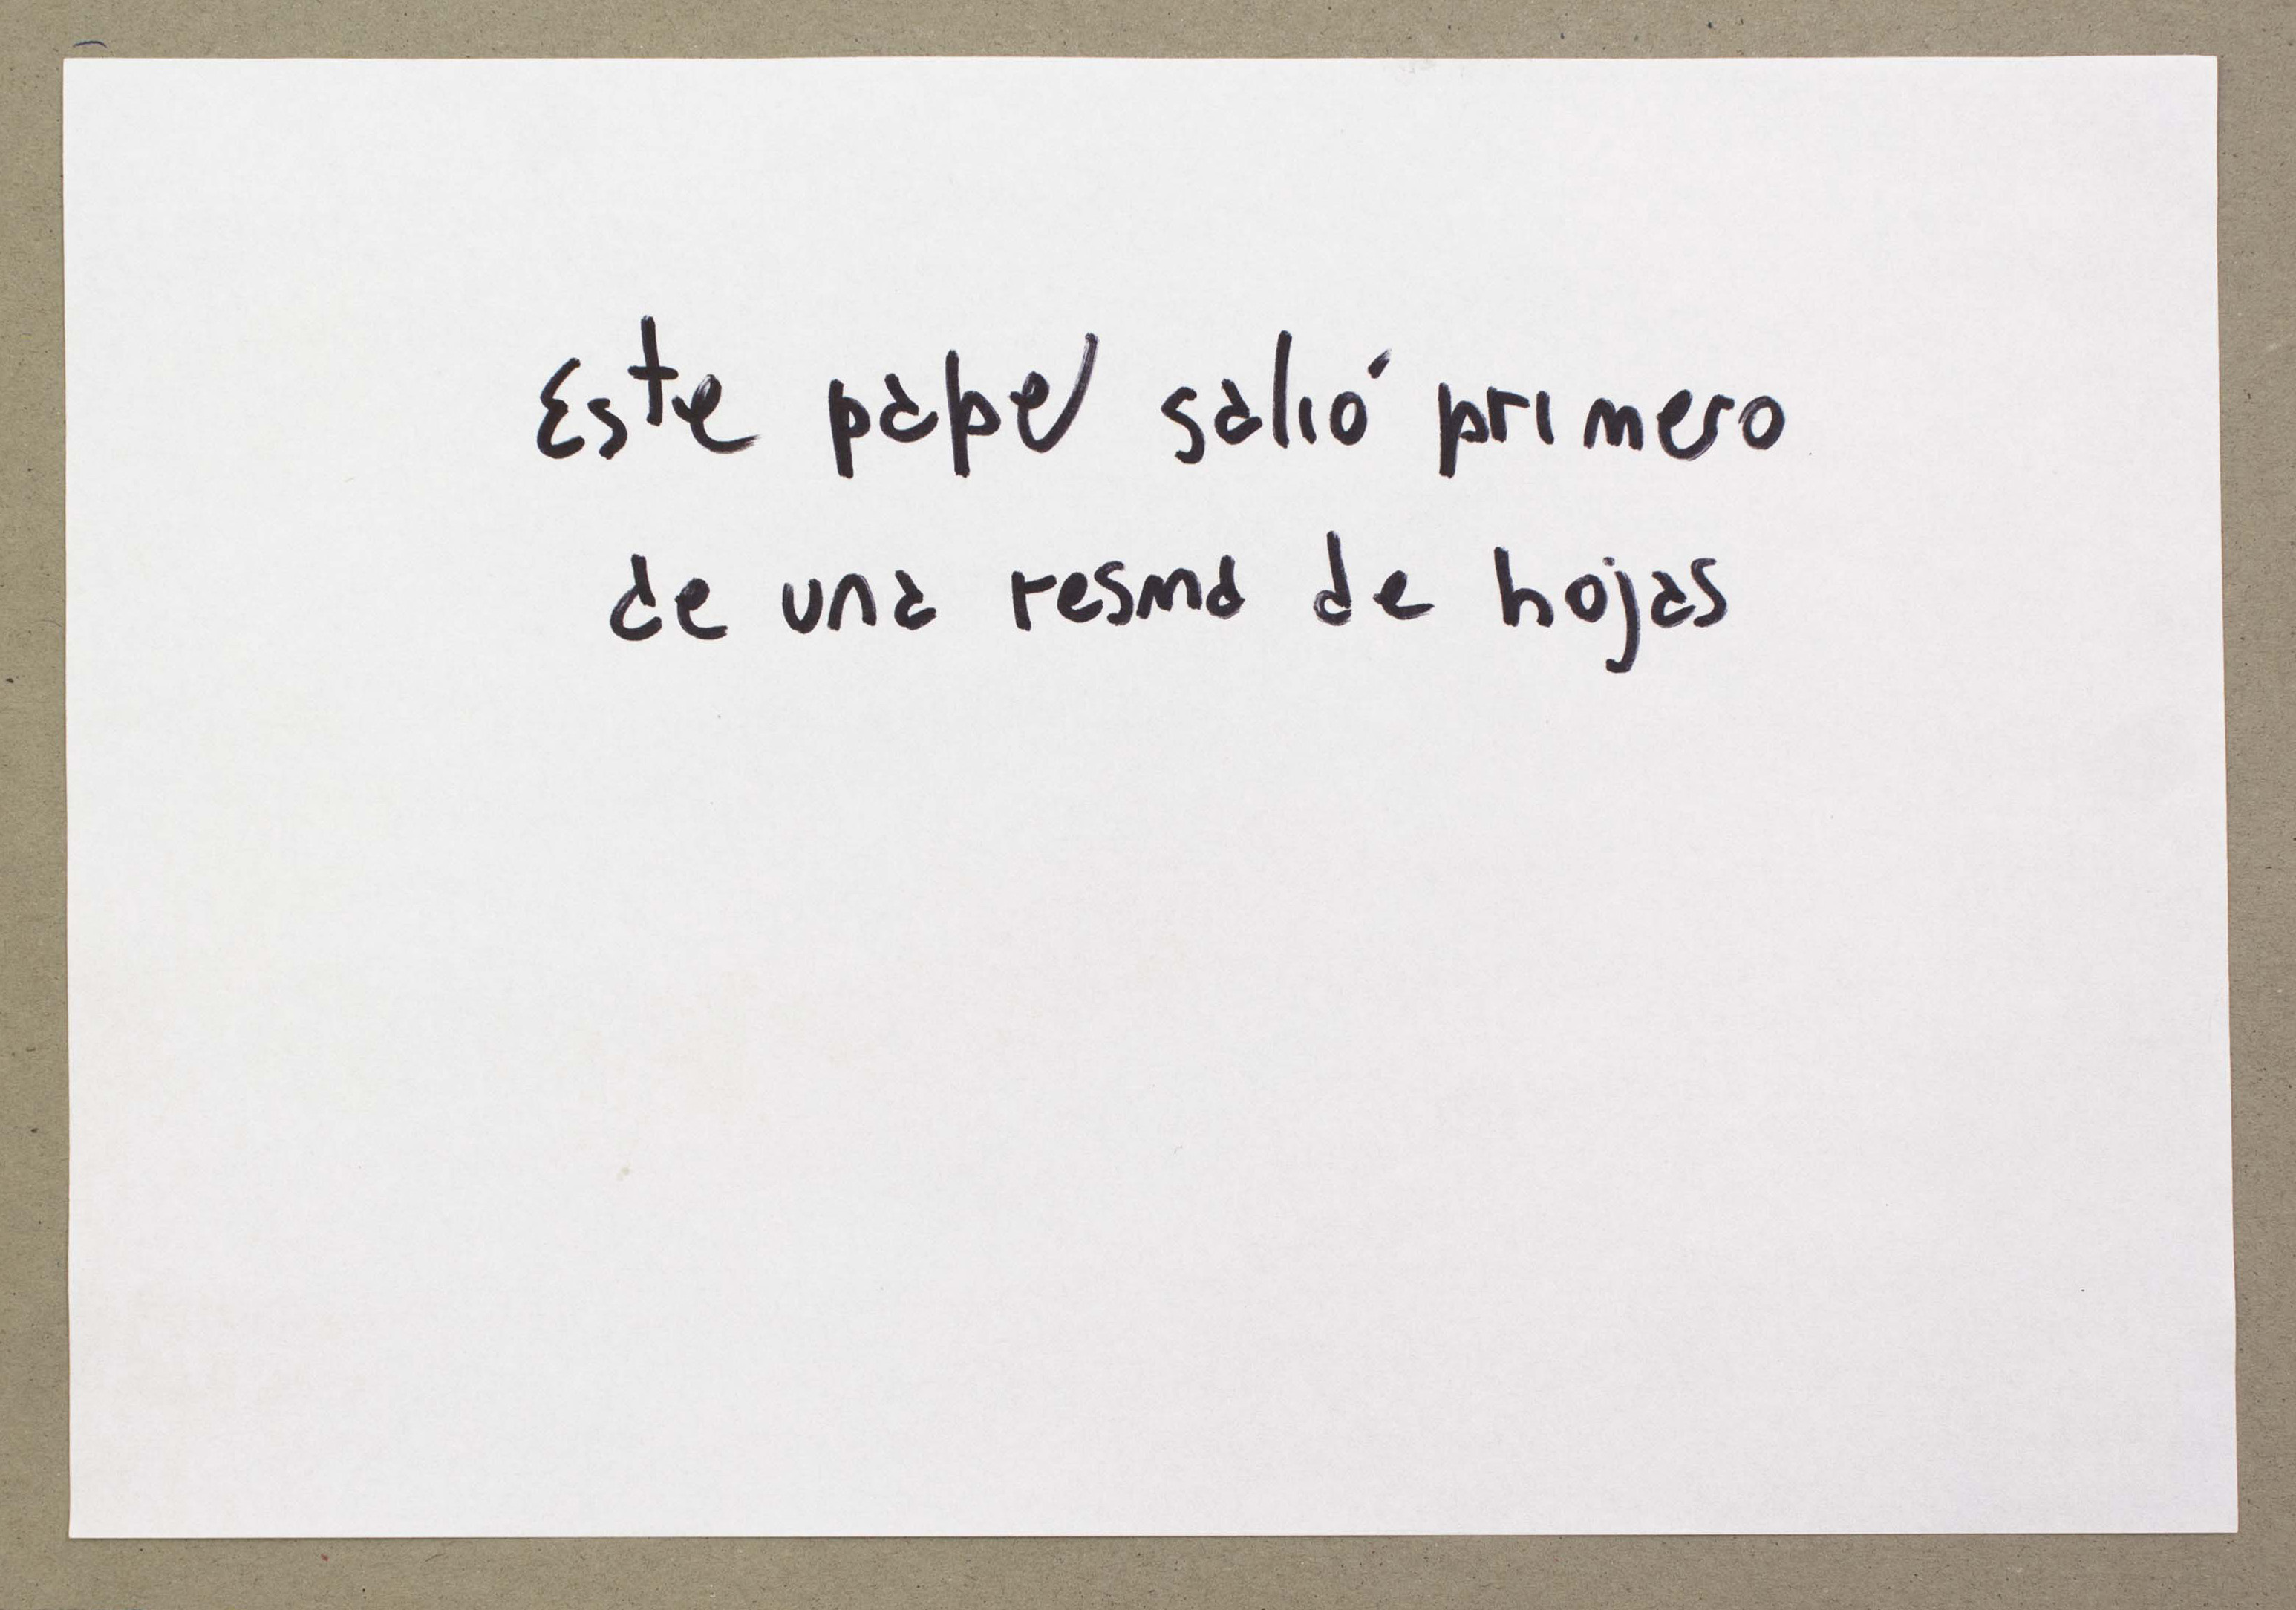 Este papel salió primero
de una resma de hojas